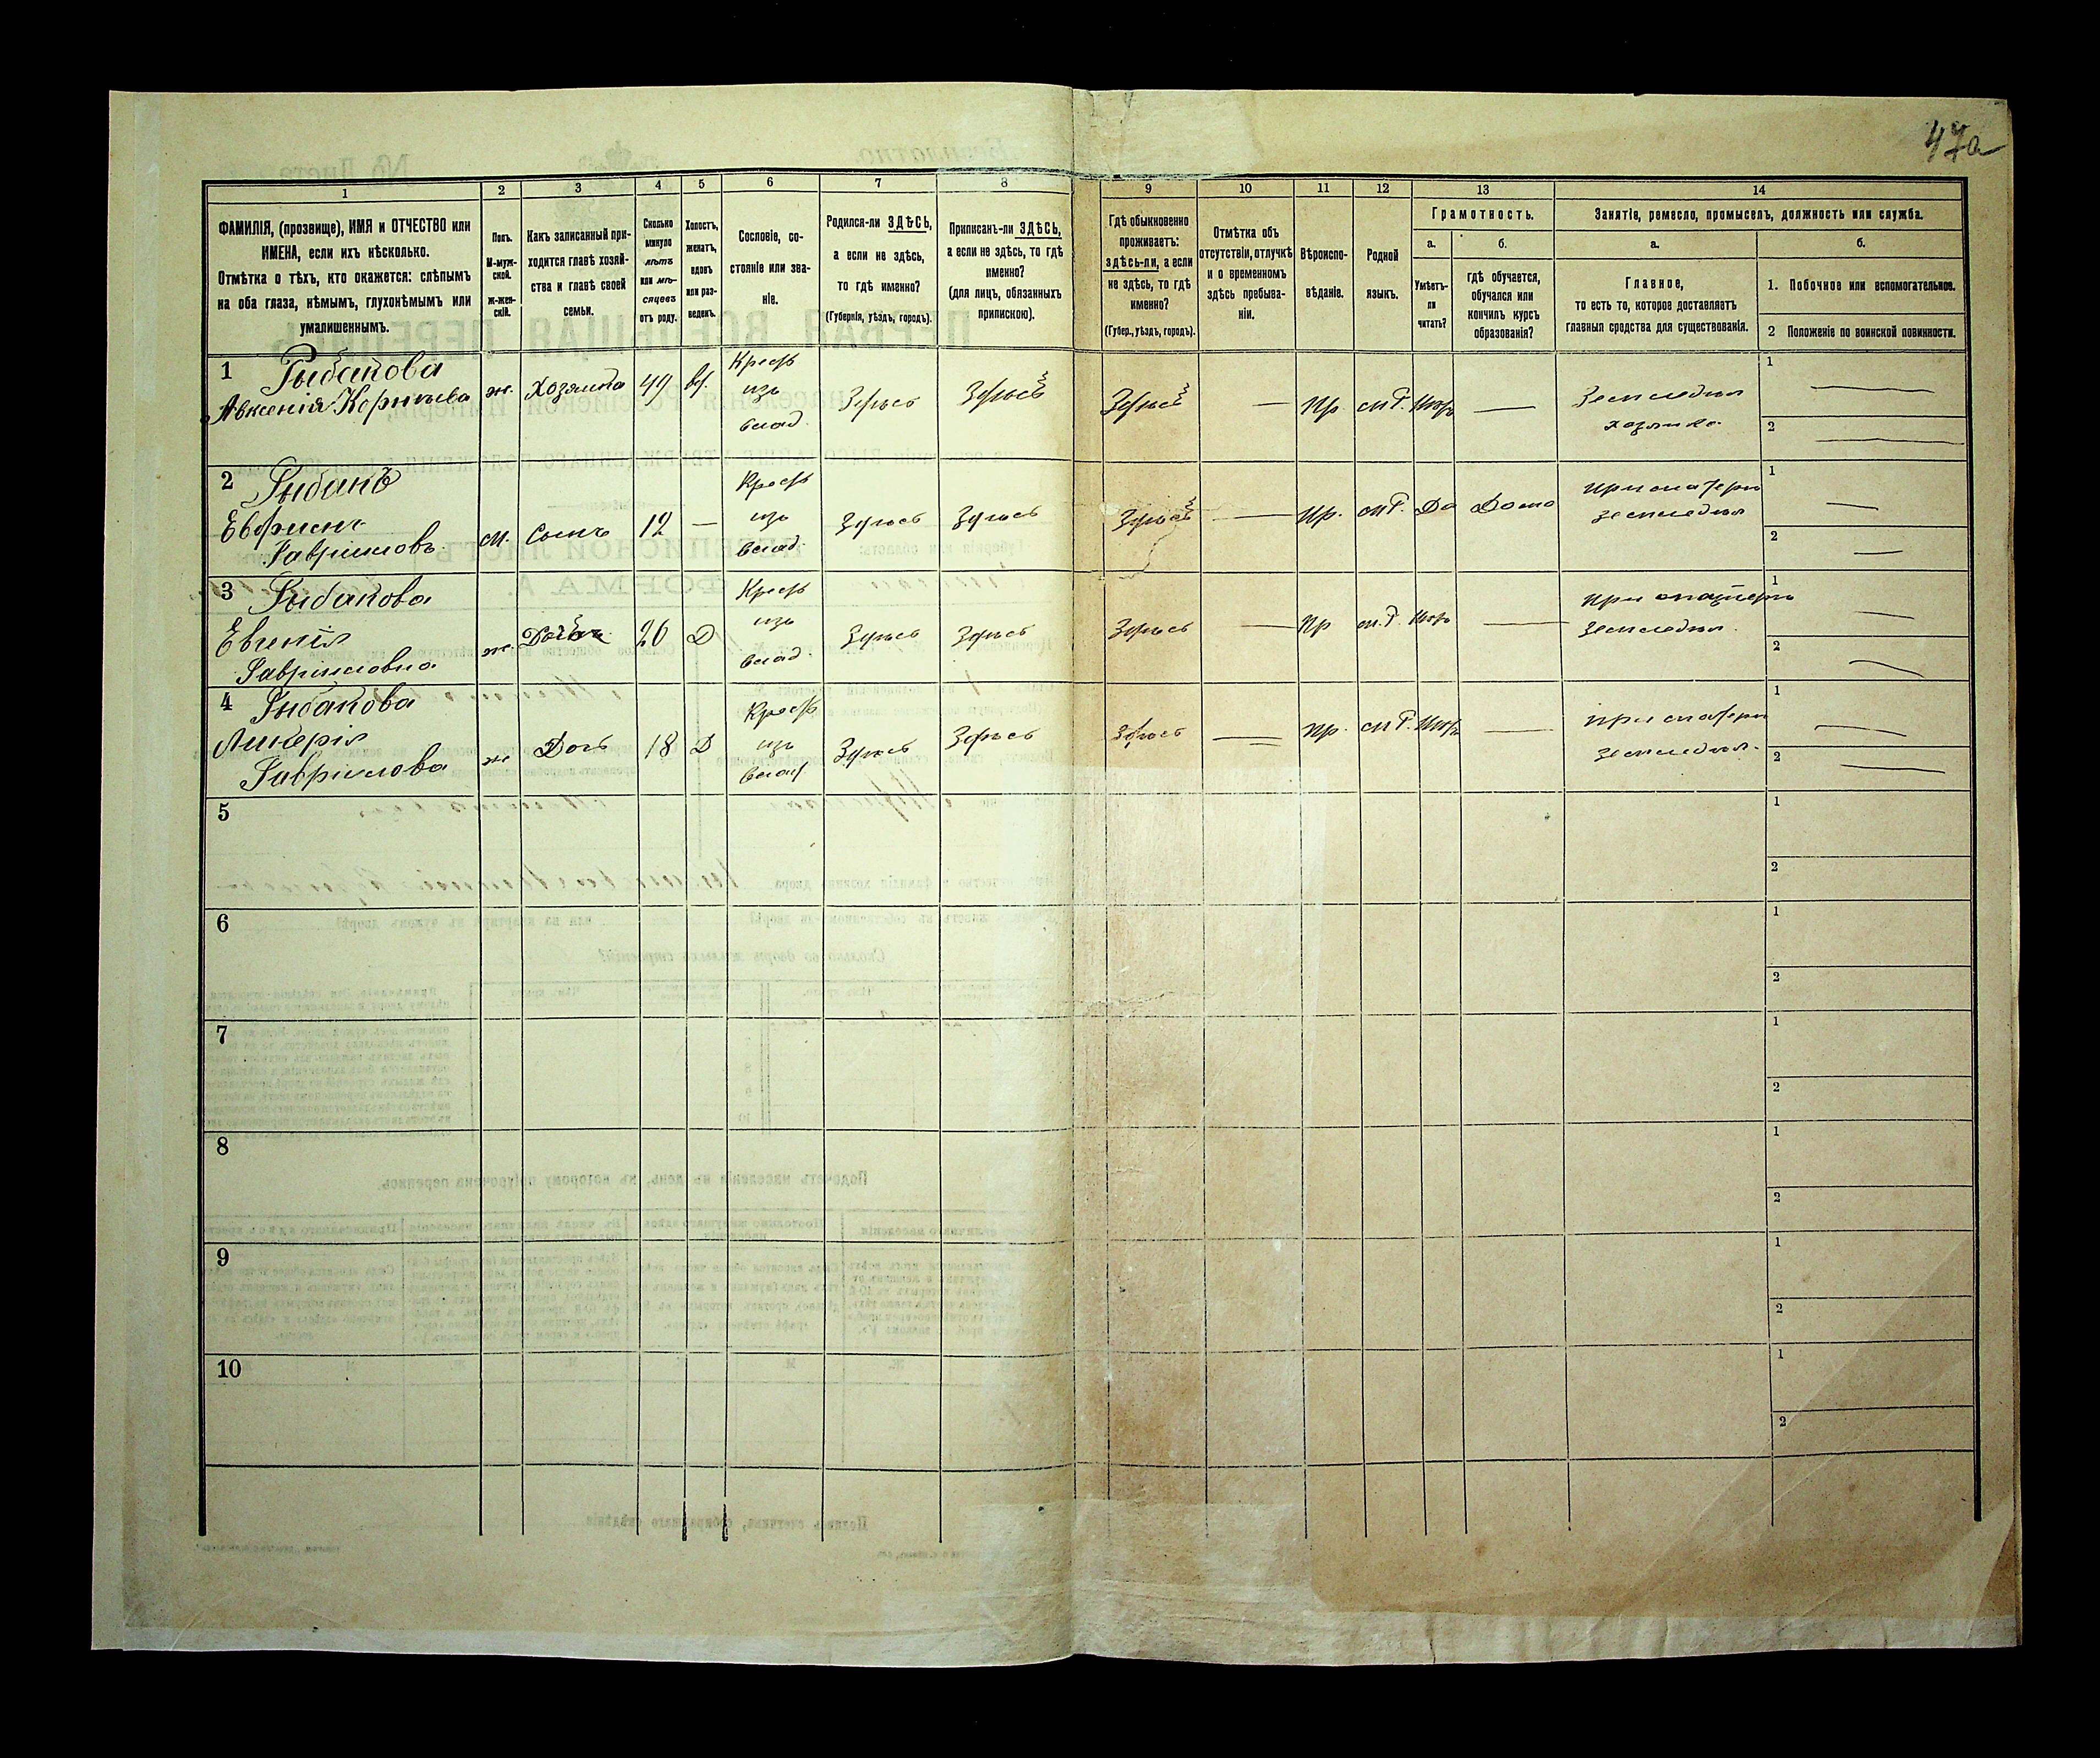 47а
1 2 3 4 5 6 7 8 9 10 11 12 13 14
ФАМИЛІЯ, (прозвище), ИМЯ и ОТЧЕСТВО или
ИМЕНА, если ихъ нѣсколько.
Отмѣтка о тѣхъ, кто окажется: слѣпымъ
на оба глаза, нѣмымъ, глухонѣмымъ или
умалишеннымъ.
Полъ.
М-муж-
ской.
ж-жен-
скій.
Какъ записанный при-
ходится главѣ хозяй-
ства и главѣ своей
семьи.
Сколько
минуло
лѣтъ
или мѣ-
сяцевъ
отъ роду.
Холостъ,
женатъ,
вдовъ
или раз-
веденъ.
Сословіе, со-
стояніе или зва-
ніе.
Родился-ли ЗДѢСЬ,
а если не здѣсь,
то гдѣ именно?
(Губернія, уѣздъ, городъ).
Приписанъ-ли ЗДѢСЬ,
а если не здѣсь, то гдѣ
именно?
(для лицъ, обязанныхъ
припискою).
Гдѣ обыкновенно
проживаетъ:
здѣсь-ли, а если
не здѣсь, то гдѣ
именно?
(Губер., уѣздъ, городъ).
Отмѣтка объ
отсутствіи, отлучкѣ
и о временномъ
здѣсь пребыва-
ніи.
Вѣроиспо-
вѣданіе.
Родной
языкъ.
Грамотность.
а.
Умѣетъ-
ли
читать?
б.
гдѣ обучается,
обучался или
кончилъ курсъ
образованія?
Занятіе, ремесло, промыселъ, должность или служба.
а.
Главное,
то есть то, которое доставляетъ
главныя средства для существованія.
б.
1. Побочное или вспомогательное.
2 Положеніе по воинской повинности.
1 Рыбакова
Авксенія Корнѣева
ж. Хозяйка 49 вд.
Крест
изъ
влад.
Здѣсь Здѣсь Здѣсь — Пр. м Р. Нѣтъ —
Земледѣл
хозяйка.
1 —
2 —
2 Рыбакъ
Гавріиловъ
м. Сынъ 12 —
Крест
изъ
влад.
Здѣсь Здѣсь Здѣсь — Пр. м Р. Да Дома
при матери
земледѣл
1 —
2 —
3 Рыбакова
Евгенія
Гавріиловна
ж. Дочь 20 Д
Крест
изъ
влад.
Здѣсь Здѣсь Здѣсь — Пр м. Р Нѣтъ —
при матери
земледѣл.
1 —
2 —
4 Рыбакова
Ликерія
Гавріилова
ж Дочь 18 Д
Крест
изъ
влад
Здѣсь Здѣсь Здѣсь — Пр. м Р. Нѣтъ —
при матери
земледѣл.
1 —
2 —
5
1
2
6
1
2
7
1
2
8
1
2
9
1
2
10
1
2